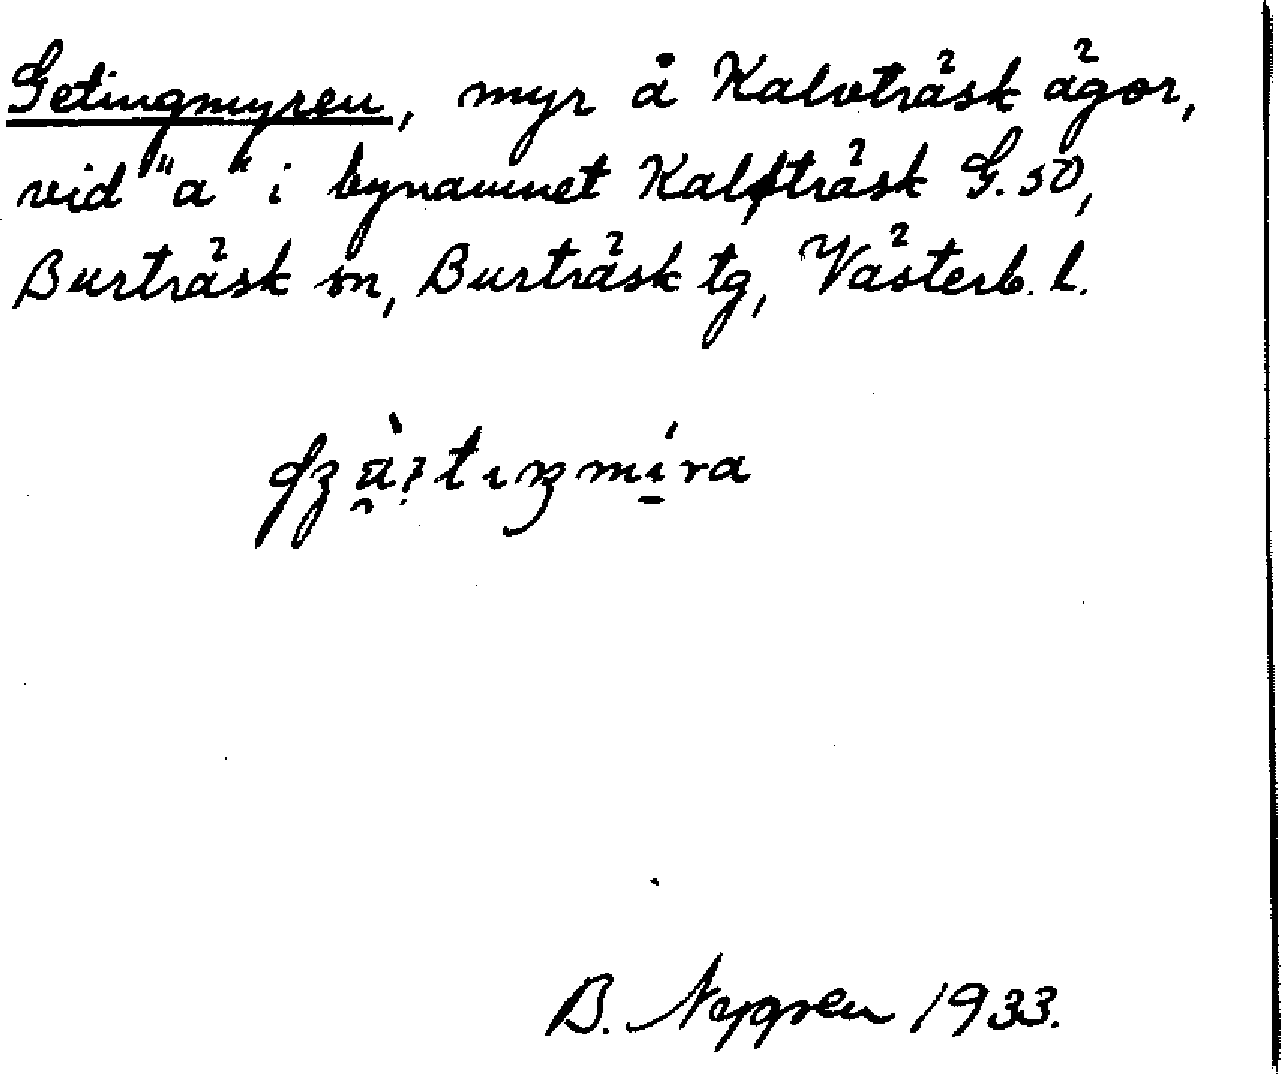 Getingmyren, myr å Kalvträsk ägor,
vid "a" i bynamnet Kalfträsk G. 50,
Burträsk sn, Burträsk tg, Västerb. L.
B. Nygren 1933.